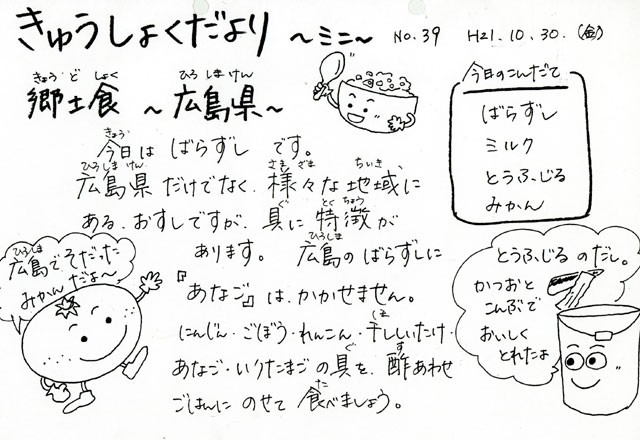 きゅうしょくだより ~ミニ~ No.39 H21.10.30.(金)
きょう ど しょく ひろ しま けん
郷土食 ~ 広島県~
今日のこんだて
ばらずし
ミルク
とうふじる
みかん
きょう
今日は ばらずし です。
ひろしま けん さま ざま ちいき
広島県 だけでなく、様々な 地域に
ぐ とくちょう
ある、おすしですが、具に 特徴が
ひろしま
あります。 広島の ばらずしに
『あなご』は、かかせません。
ほ
にんじん・ごぼう・れんこん・干ししいたけ・
ぐ す
あなご・いりたまご の 具を、酢あわせ
た
ごはんに のせて 食べましょう。
ひろしま
広島でそだった
みかんだよ~
とうふじるのだし。
かつおと
こんぶで
おいしく
とれたよ